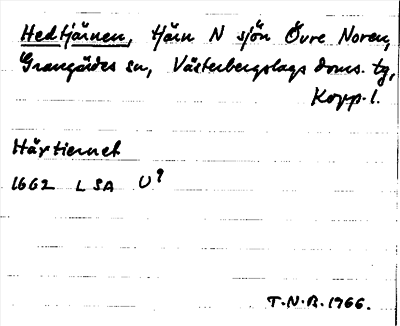 Hedtjärnen, tjärn N sjön Övre Noren,
Grangärdes sn, Västerbergslags doms. tg,
Kopp. l.
Härtiernet
1662 LSA U?
T.N.B. 1966.